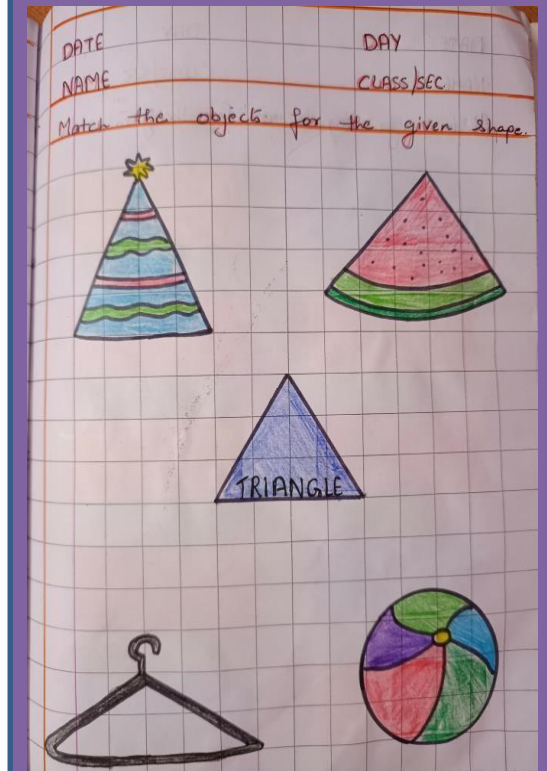 DATE DAY
NAME CLASS/SEC
Match the objects for the given shape.
TRIANGLE